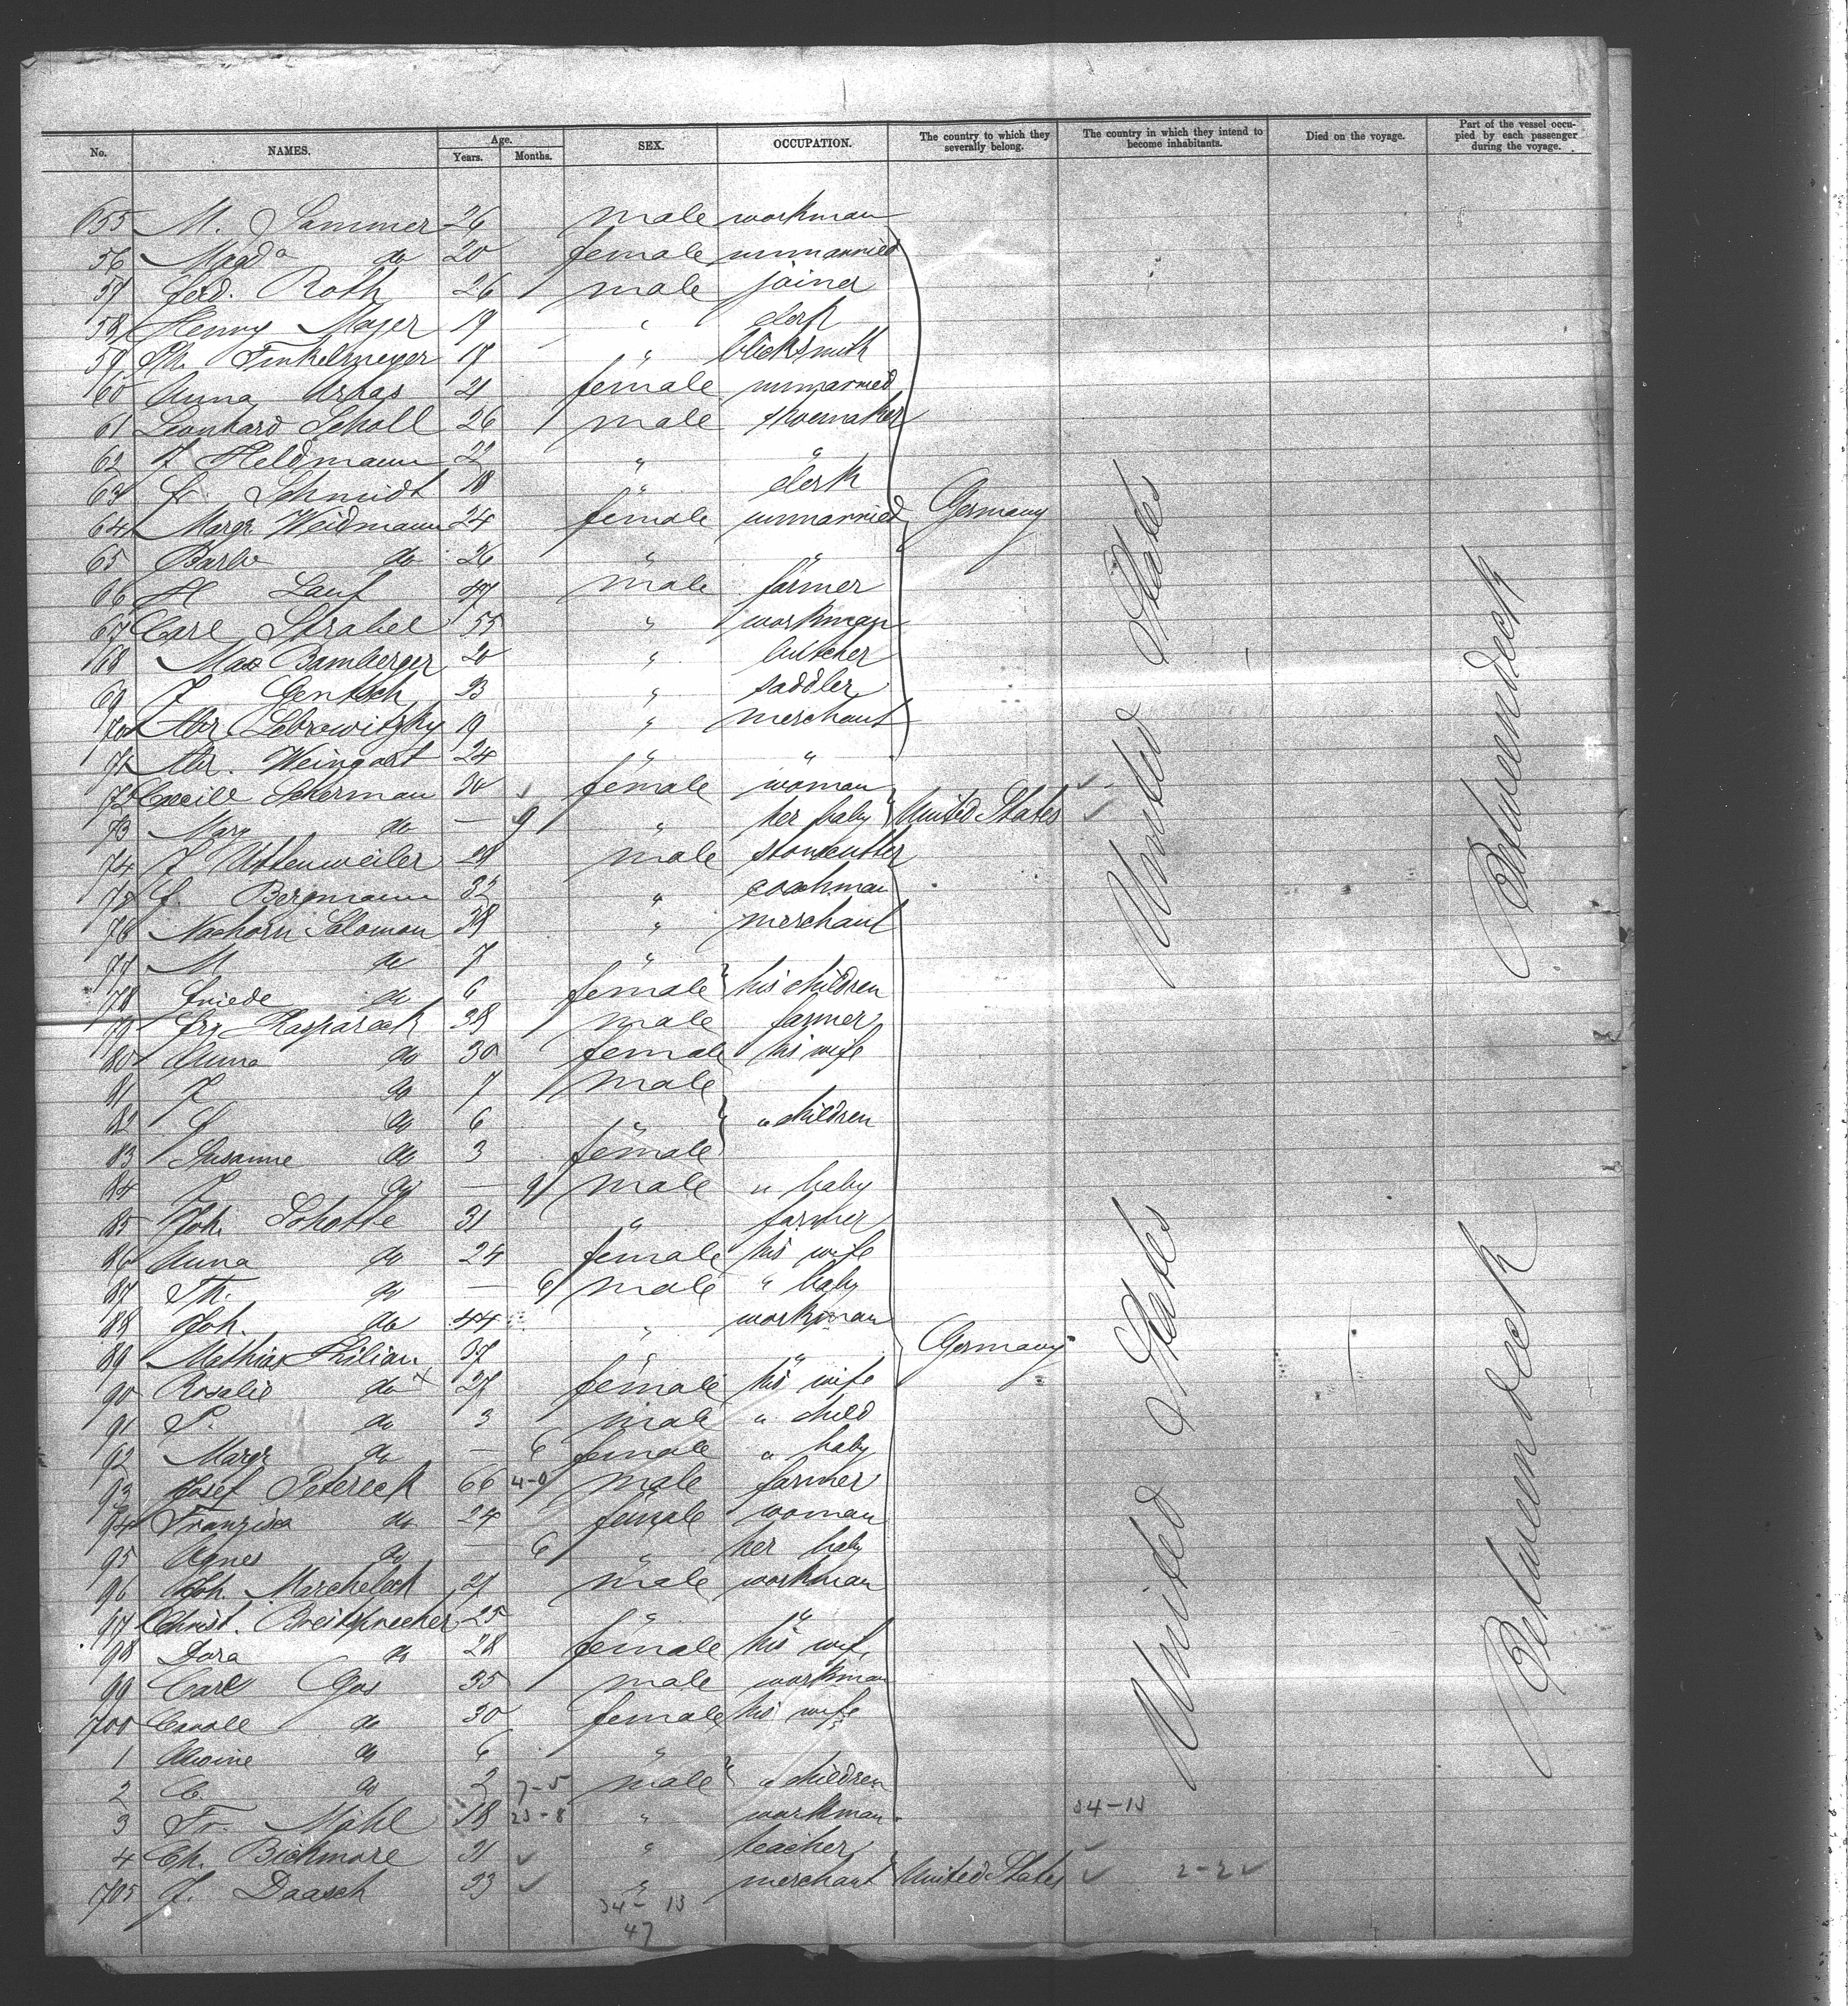 No. NAMES. Age. Years. Months. SEX. OCCUPATION. The country to which they severally belong. The country in which they intend to become inhabitants. Died on the voyage. Part of the vessel occupied by each passenger during the voyage.
655 M. Sommer 26 male workman
56 Magda do 20 female unmarried
57 Ferd. Roth 26 male joiner
58 Henry Mayer 19 " clerk
59 Ph. Finkelmeyer 17 " blcksmith
60 Anna 21 female unmarried
61 Leonhard Scholl 26 male shoemaker
62 J Heldmann 22 " "
63 Fr. Schmidt 18 " clerk
64 Margr Weidmann 24 female unmarried Germany
65 Barb do 26 " "
66 H Lauf 47 male farmer
67 Carl Strabel 55 " workman
68 Max Bamberger 20 " butcher
69 J Gentsch 23 " saddler
70 Abr. Lebrowitzky 19 " merchant
71 Abr. Weingart 24 " "
72 Secherman 30 female woman
73 Mary do — 9 " her baby United States
74 J Uttenweiler 28 male stonecutter
75 Bergmann 32 " coachman
76 Nochorn Salomon 38 " merchant
77 M do 7 "
78 Friede do 6 female his children
79 Frz Kasparack 38 male farmer
80 Anna do 30 female his wife
81 J do 7 male
82 do 6 " " children
83 Susanne do 3 female
84 J do — 9 male " baby
85 Joh. Schotte 31 " farmer
86 Anna do 24 female his wife
87 Th. do — 6 male " baby
88 Joh. do 44 " workman
89 Mathias 37 " " Germany
90 Rosalie do x 27 female his wife
91 P. do 3 male " child
92 Margr do — 6 female " baby
93 Josef Petereck 66 4-9 male farmer
94 Franziska do 24 female woman
95 Agnes do — 6 " her baby
96 Joh. Marcheleck 27 male workman
97 Christ. Breitsprecher 25 " "
98 Dora do 28 female his wife
99 Carl Gos 35 male workman
700 Caroll do 30 female his wife
1 Alwine do 6 "
2 C. do 2 7-5 male " children
3 Fr. Mähl 18 23-8 " workman 34-13
4 Ch. Bichmore 31 " teacher
705 J. Daasch 23 " merchant United States 2-2
34-13
47
United States
United States
Betweendeck
Betweendeck